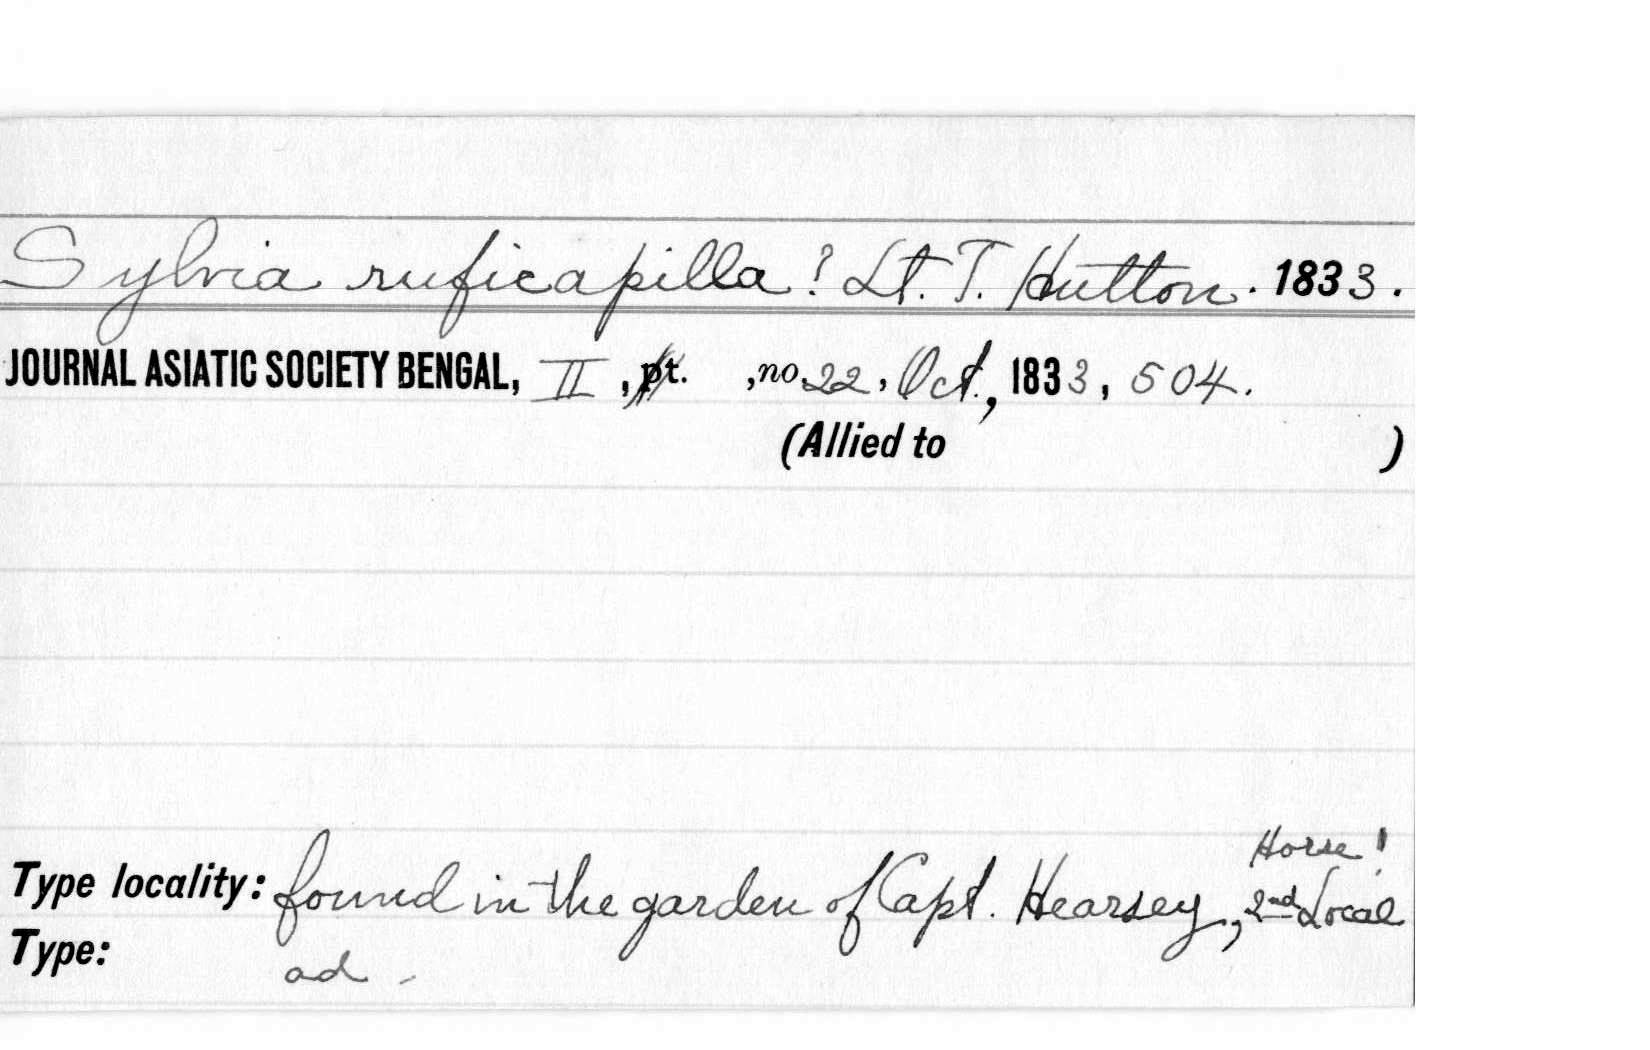 Sylvia ruficapilla? Lt. T. Hutton. 1833.
JOURNAL ASIATIC SOCIETY BENGAL, II, pt. , no. 22, Oct., 1833, 504.
(Allied to )
Horse!
Type locality: found in the garden of Capt. Hearsey, 2nd Local
Type: ad -